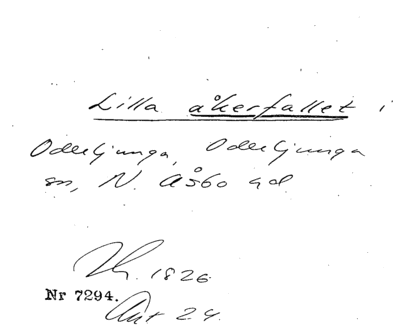 Lilla åkerfallet i
Oderljunga, Oderljunga
sn, N. Åsbo hd
1826
Nr 7294.
Ant 24.